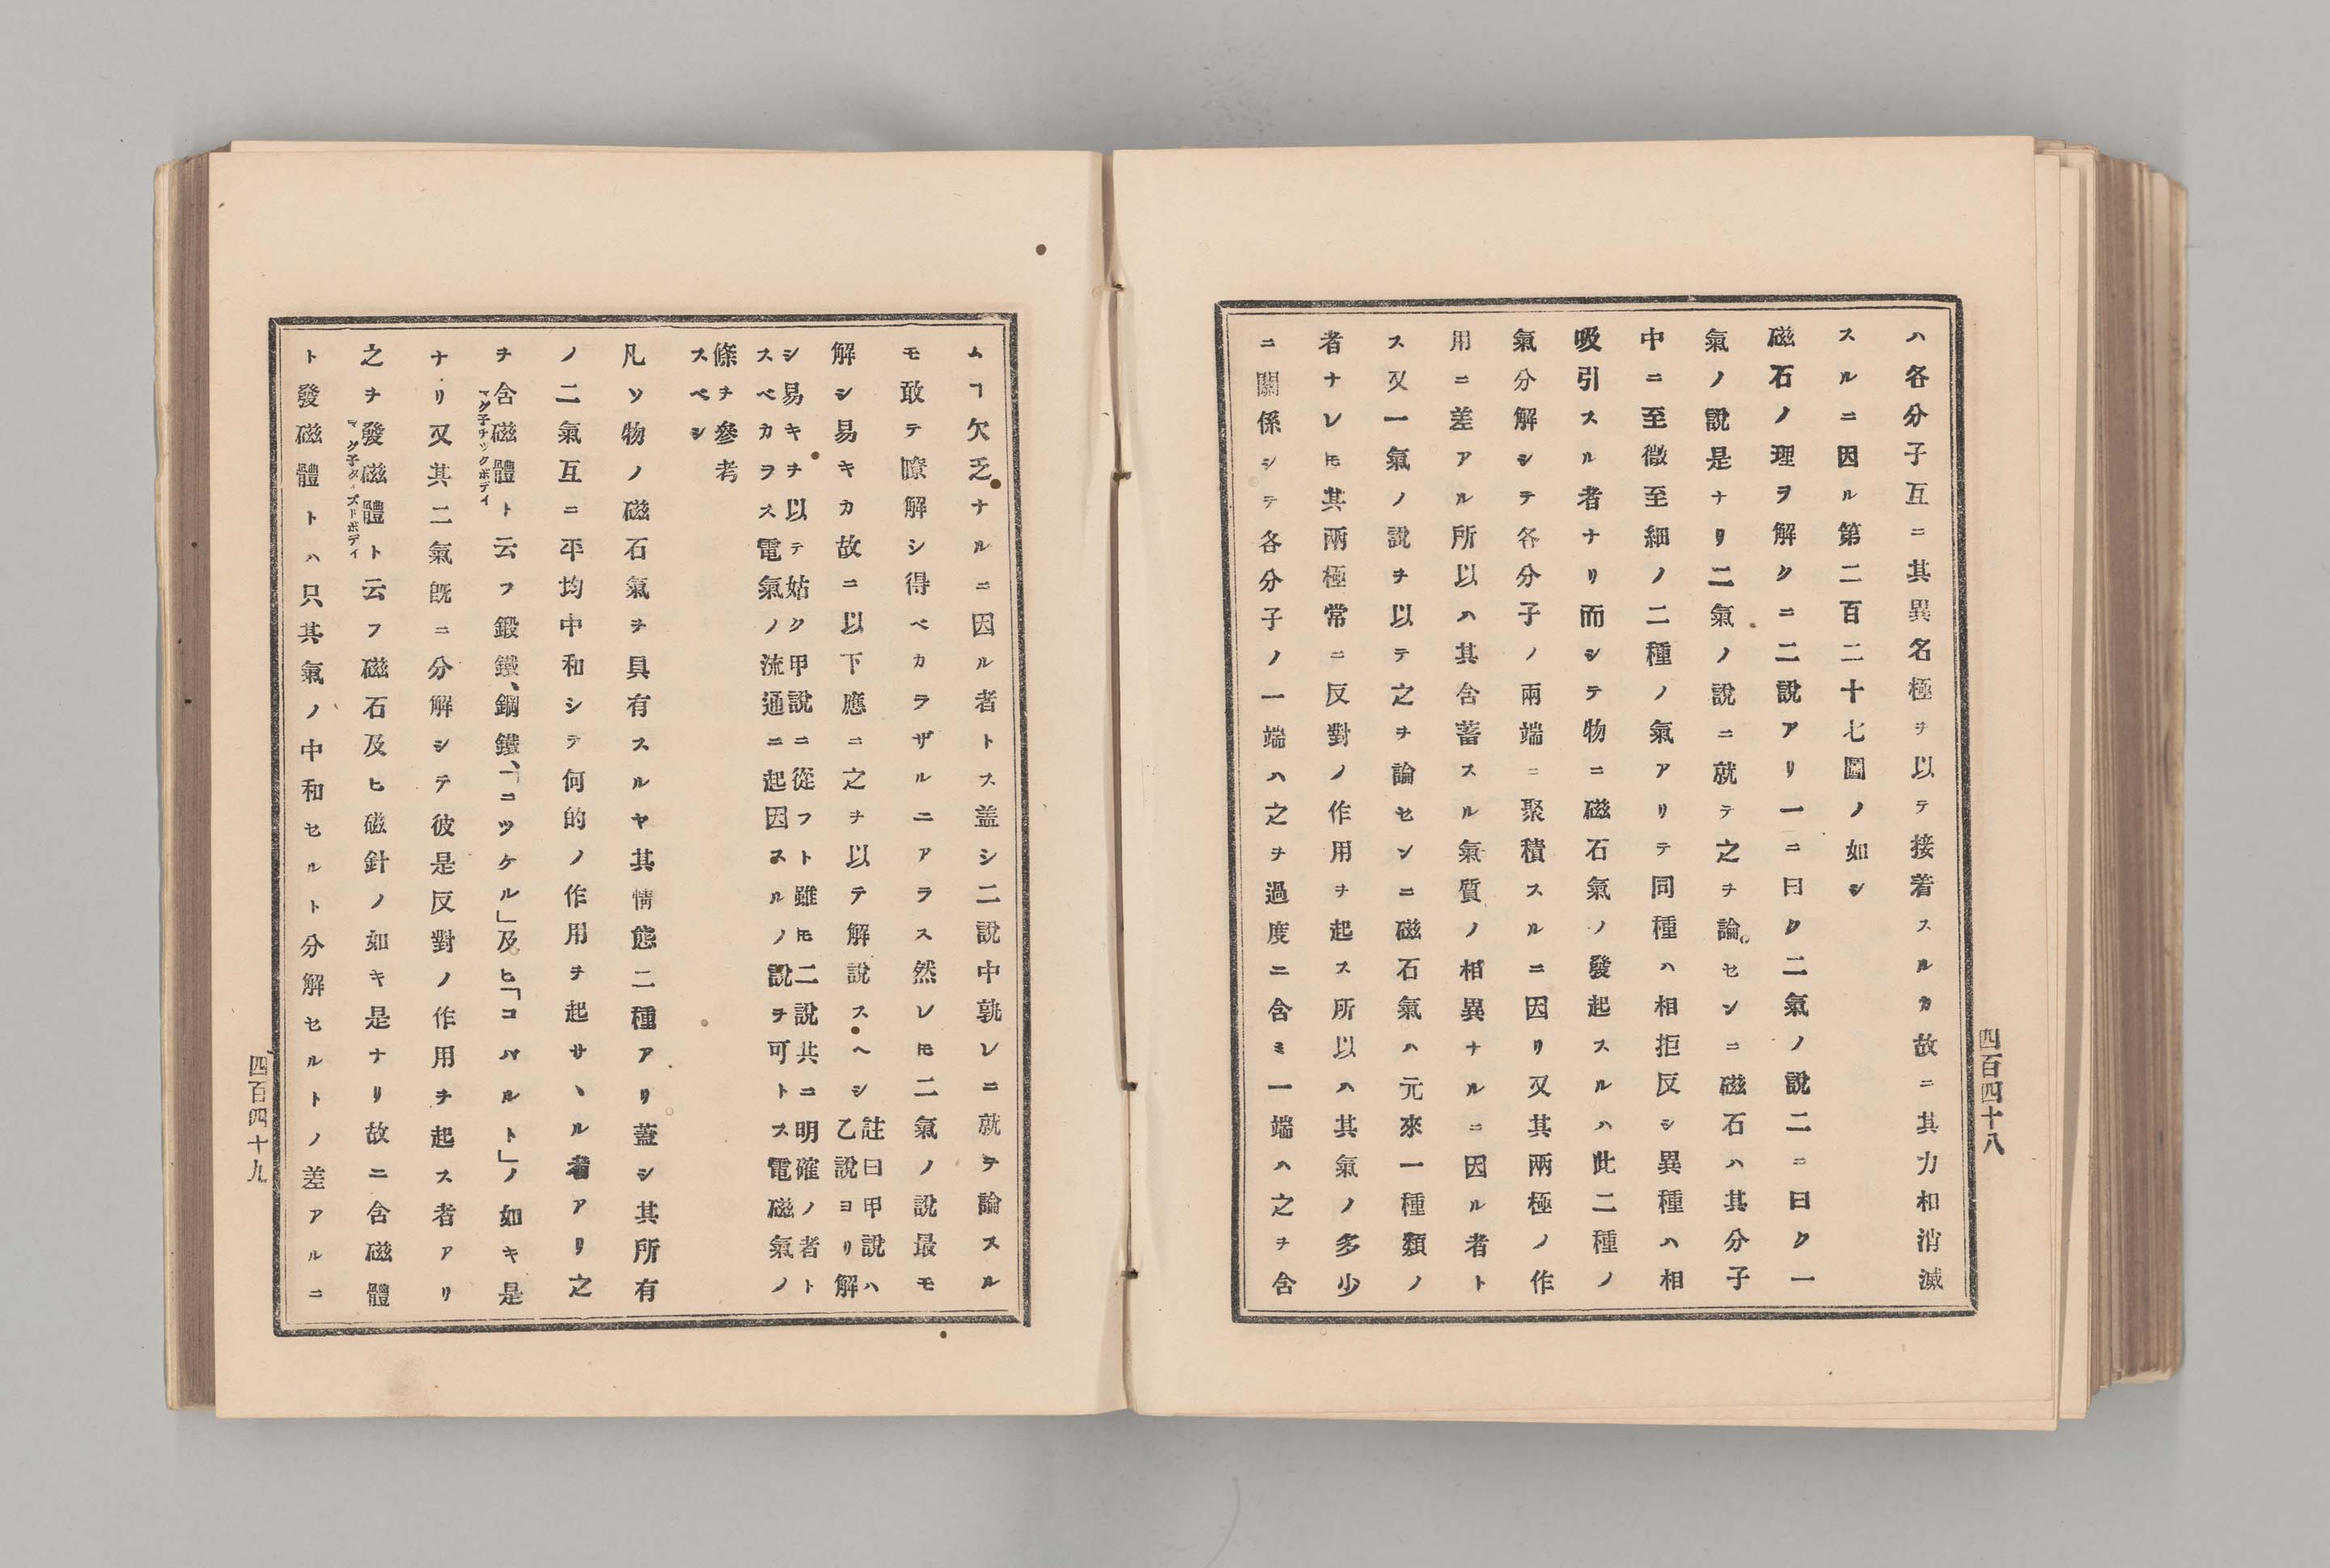 四百四十八
ハ各分子互ニ其異名極ヲ以テ接着スルカ故ニ其力相消滅
スルニ因ル第二百二十七圖ノ如シ
磁石ノ理ヲ解クニ二說アリ一ニ曰ク二氣ノ說二ニ曰ク一
氣ノ說是ナリ二氣ノ說ニ就テ之ヲ論センニ磁石ハ其分子
中ニ至微至細ノ二種ノ氣アリテ同種ハ相拒反シ異種ハ相
吸引スル者ナリ而シテ物ニ磁石氣ノ發起スルハ此二種ノ
氣分解シテ各分子ノ兩端ニ聚積スルニ因リ又其兩極ノ作
用ニ差アル所以ハ其含蓄スル氣質ノ相異ナルニ因ル者ト
ス又一氣ノ說ヲ以テ之ヲ論センニ磁石氣ハ元來一種類ノ
者ナレ𪜈其兩極常ニ反對ノ作用ヲ起ス所以ハ其氣ノ多少
ニ關係シテ各分子ノ一端ハ之ヲ過度ニ含ミ一端ハ之ヲ含
ムヿ欠乏ナルニ因ル者トス蓋シ二說中孰レニ就テ論スル
モ敢テ瞭解シ得ベカラザルニアラス然レ𪜈二氣ノ說最モ
解シ易キカ故ニ以下應ニ之ヲ以テ解說スヘシ註曰甲說ハ
乙說ヨリ解
シ易キヲ以テ姑ク甲說ニ從フト雖𪜈二說共ニ明確ノ者ト
スベカラス電氣ノ流通ニ起因スルノ說ヲ可トス電磁氣ノ
條ヲ參考
スベシ
凡ソ物ノ磁石氣ヲ具有スルヤ其情態二種アリ蓋シ其所有
ノ二氣互ニ平均中和シテ何的ノ作用ヲ起サヽル者アリ之
ヲ含磁體ト云フ鍛鐵、鋼鐵、「ニツケル」及ヒ「コバルト」ノ如キ是
マグ子チックボデイ
ナリ又其二氣既ニ分解シテ彼是反對ノ作用ヲ起ス者アリ
之ヲ發磁體ト云フ磁石及ヒ磁針ノ如キ是ナリ故ニ含磁體
マグ子タイズトボデイ
ト發磁體トハ只其氣ノ中和セルト分解セルトノ差アルニ
四百四十九